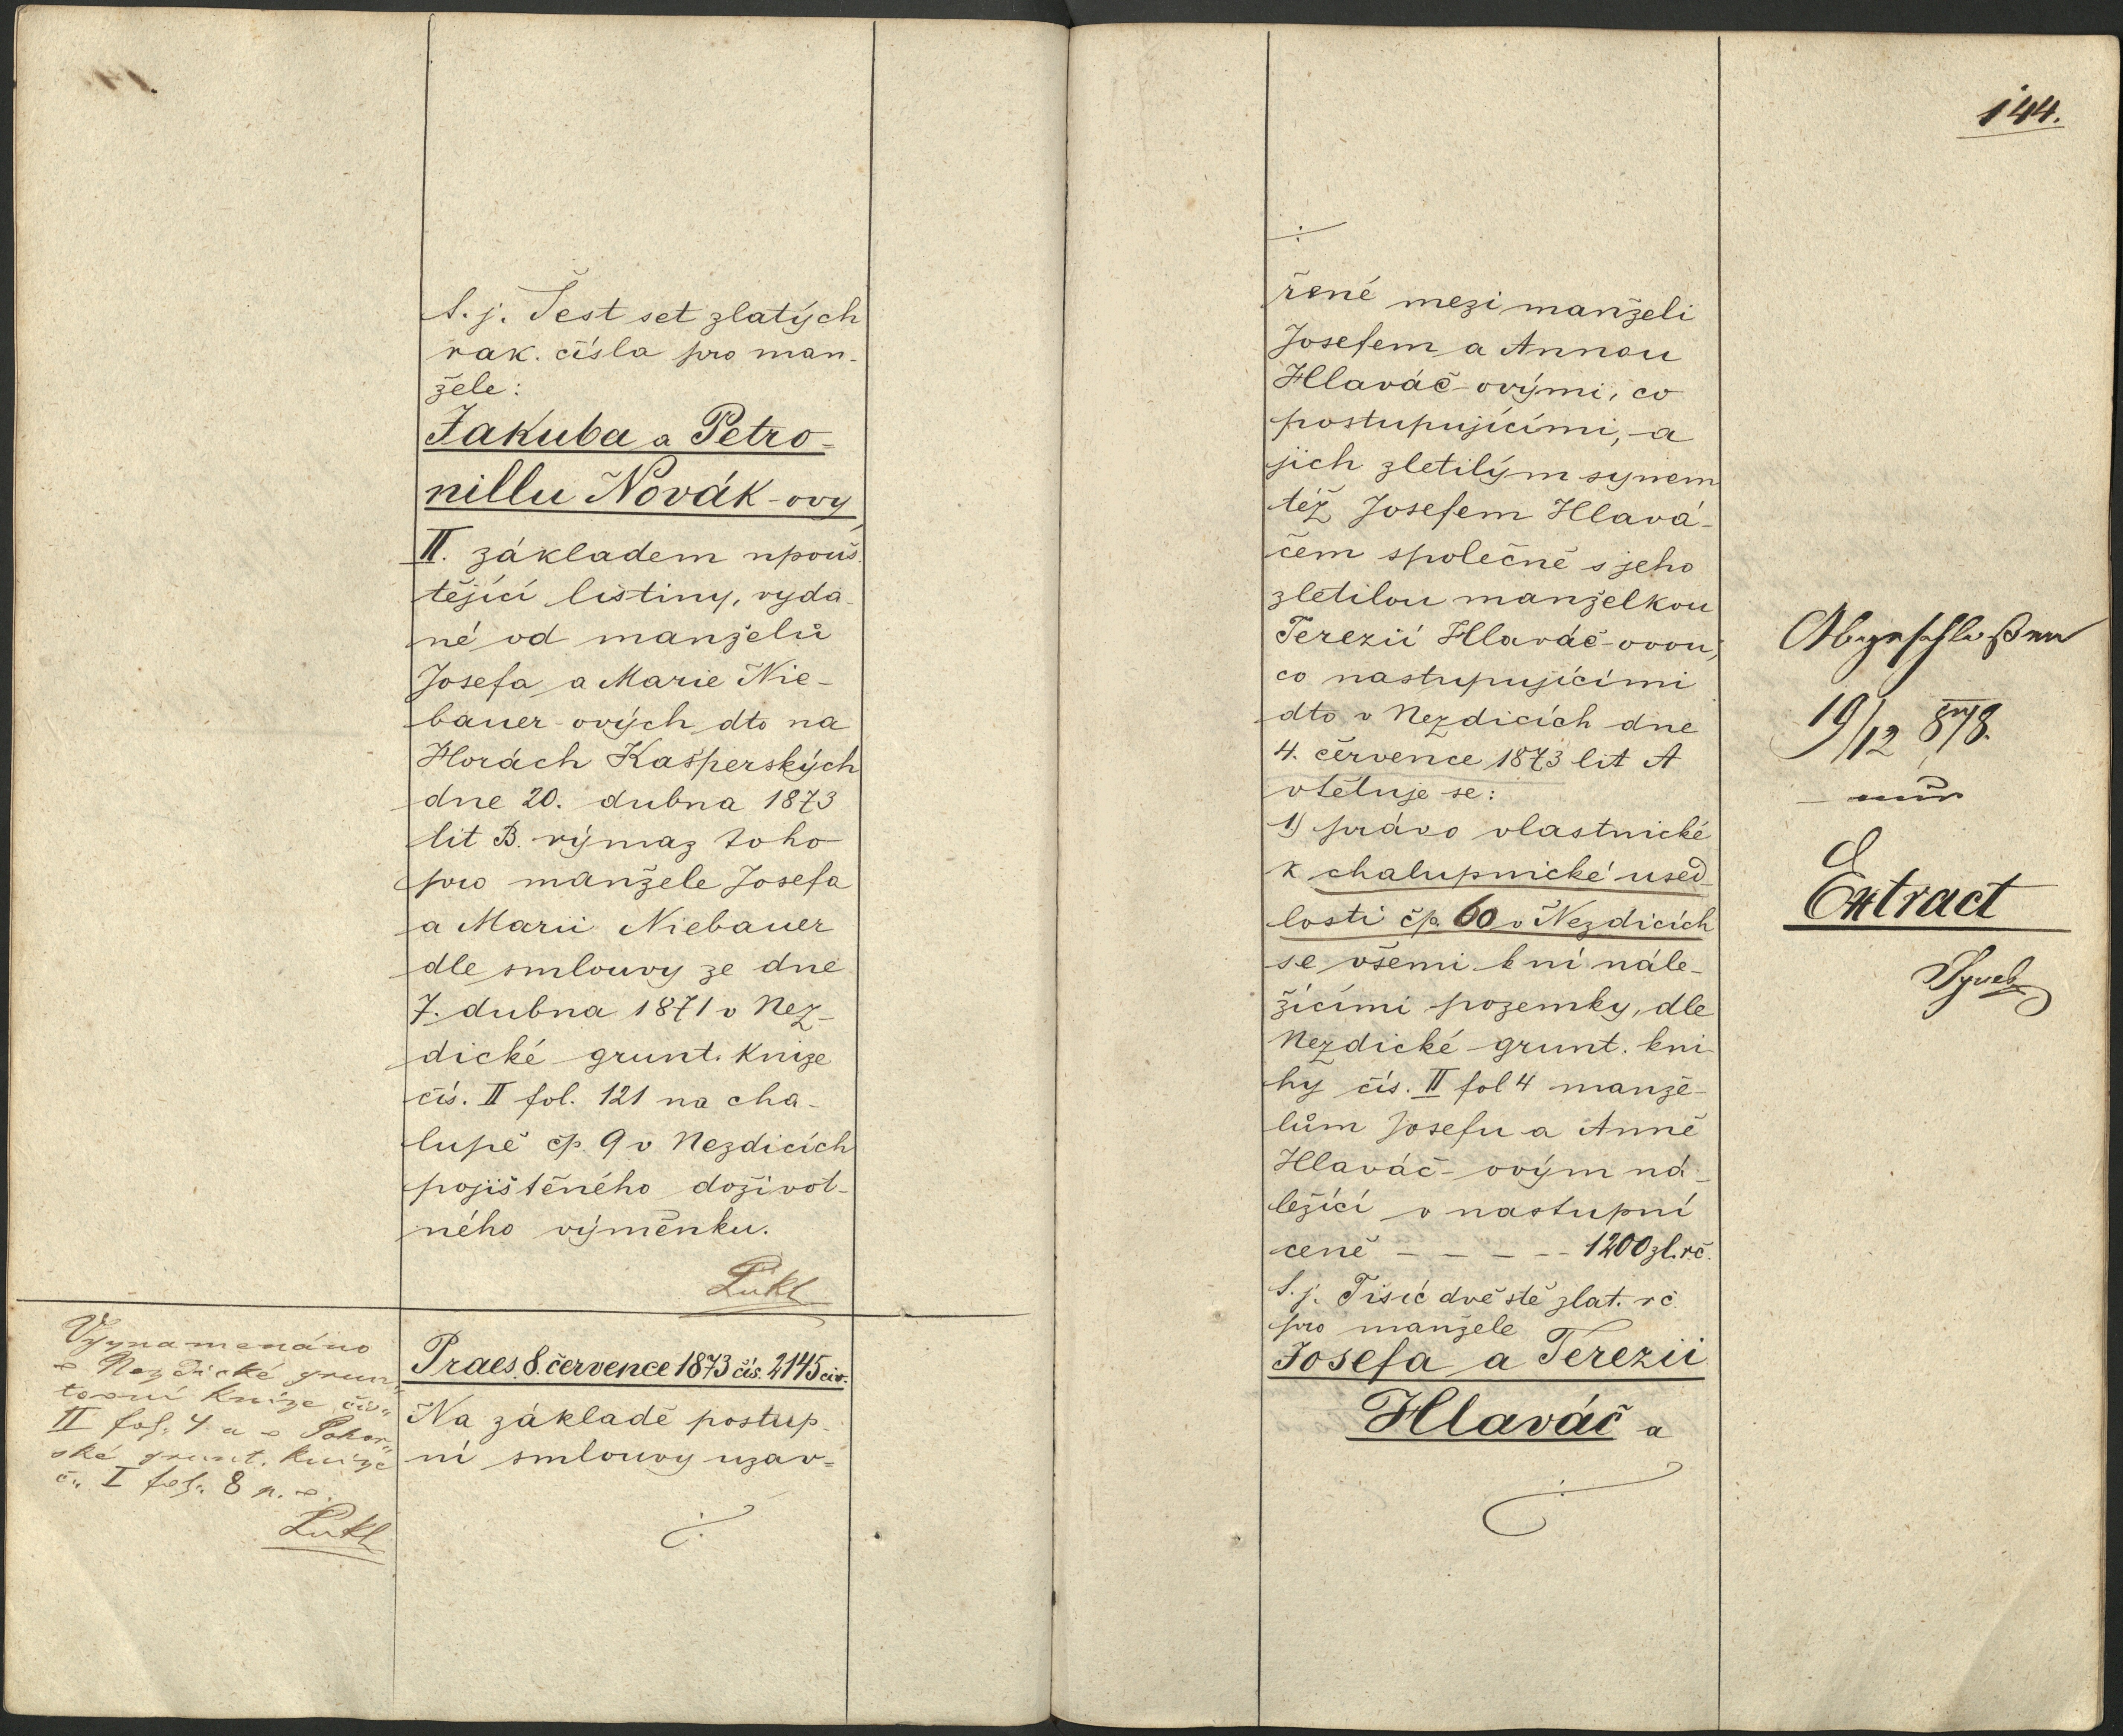 t. j. Šest set zlatých
rak. čísla pro man-
žele:
Jakuba a Petro-
nillu Novák-ovy
II. základem upouš-
tějící listiny, vyda-
né od manželů
Josefa a Marie Nie-
bauer-ových dto na
Horách Kašperských
dne 20. dubna 1873
lit B. výmaz toho
pro manžele Josefa
a Marii Niebauer
dle smlouvy ze dne
7. dubna 1871 v Nez-
dické grunt. Knize
čís. II fol. 121 na cha-
lupě čp. 9 v Nezdicích
pojištěného doživot-
ného výměnku.
Lukl
Vyznamenáno
v Nezdické grun-
tovní Knize čís.
II fol. 4 a v
ské grunt. Knize
č. I fol. 8 p. v.
Lukl
Praes. 8. července 1873 čís. 2145 civ.
Na základě postup-
ní smlouvy uzav-
./.
144.
./.
řené mezi manželi
Josefem a Annou
Hlaváč-ovými, co
postupujícími, a
jich zletilým synem
též Josefem Hlavá-
čem společně s jeho
zletilou manželkou
Terezií Hlaváč-ovou,
co nastupujícími
dto v Nezdicích dne
4. července 1873 lit A
vtěluje se:
1) právo vlastnické
k chalupnické used-
losti čp. 60 v Nezdicích
se všemi k ní nále-
žícími pozemky, dle
Nezdické grunt. kni-
hy čís. II fol 4 manže-
lům Josefu a Anně
Hlaváč-ovým ná-
ležící v nastupní
ceně - - - - - 1200 zl. rč.
t. j. Tisíc dvě stě zlat. rč.
pro manžele
Josefa a Terezii
Hlaváč a
./.
Abgeschloßen
19/12 878.
Extract